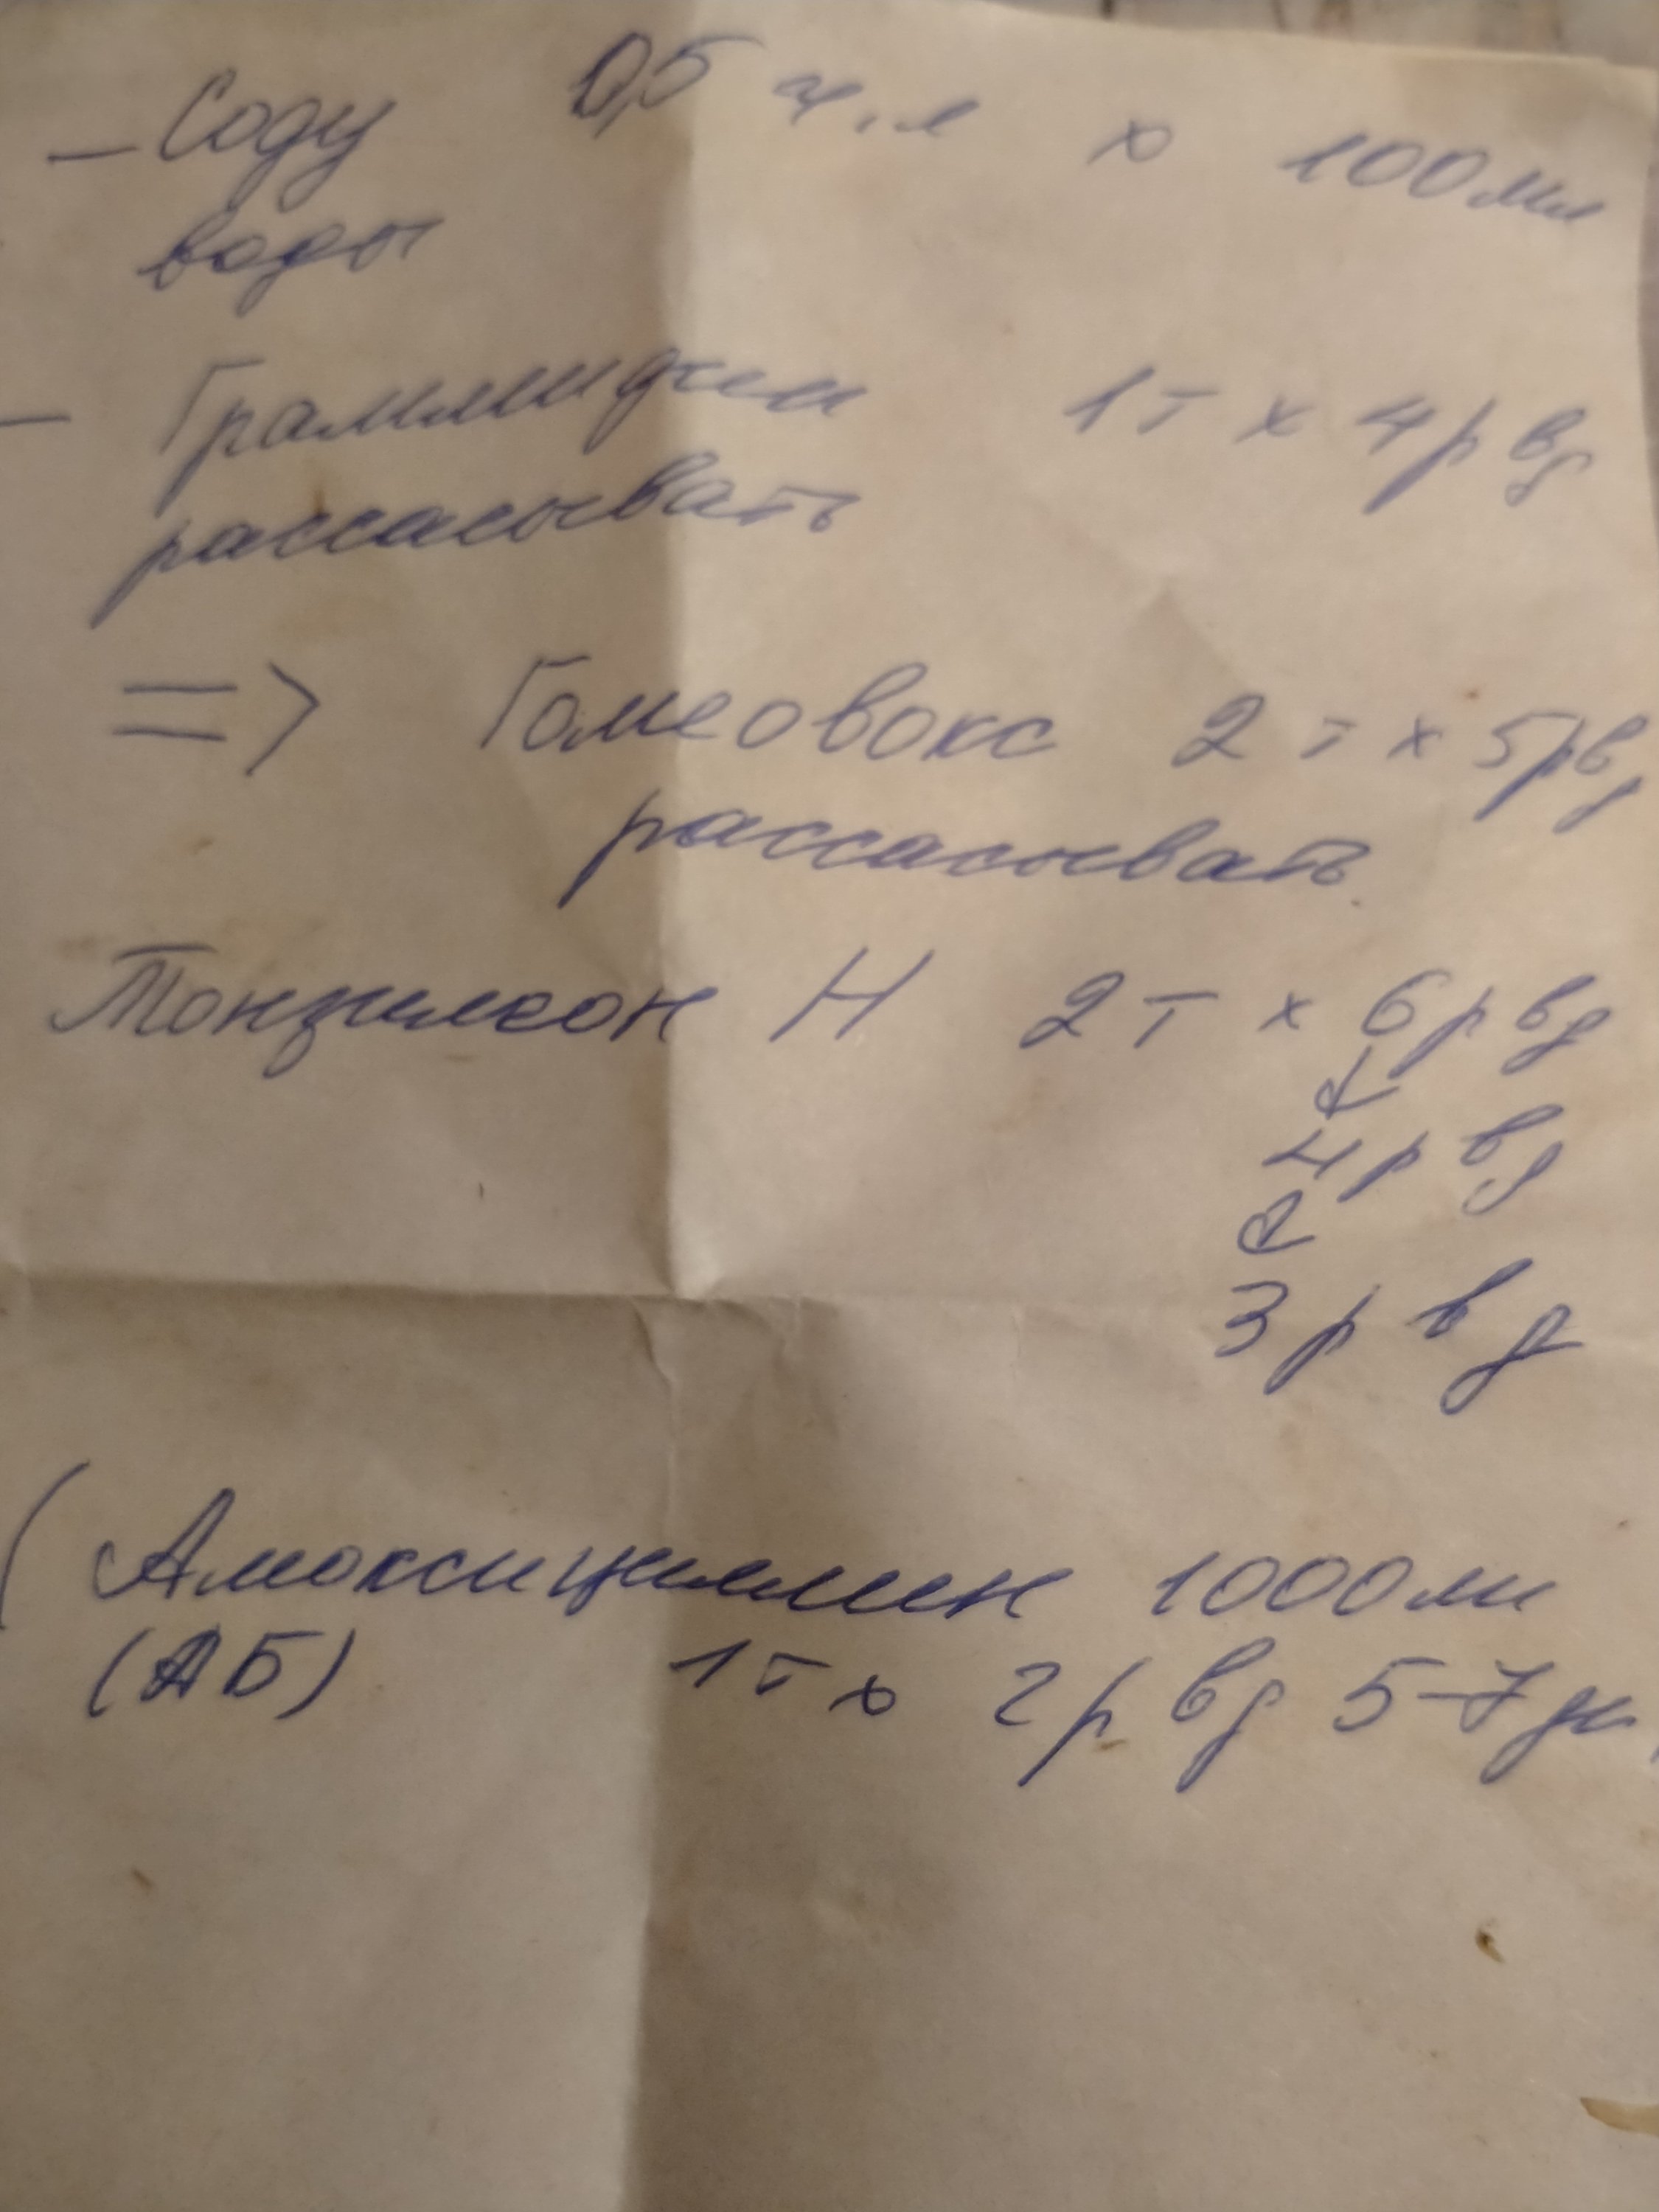 — Соду 0,5 ч.л х 100 мл
воды
— Граммидин 1т х 4 р в д
рассасывать
=> Гомеовокс 2 т х 5 р в д
рассасывать.
Тонзилгон Н 2т х 6 р в д
↓
4 р в д
↓
3 р в д
( Амоксициллин 1000 мг
(АБ) 1т х 2 р в д 5-7 дн